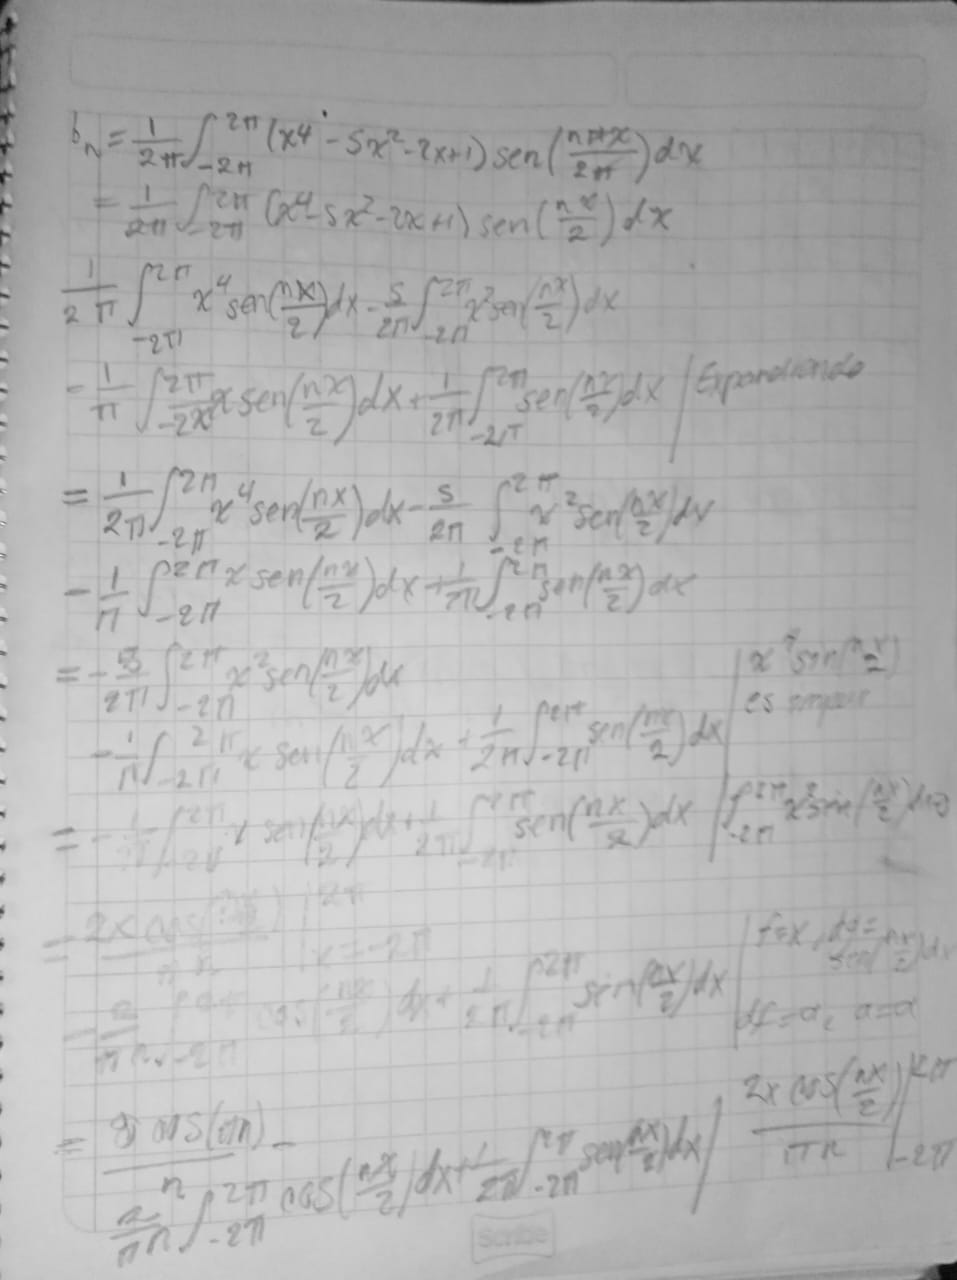 b_n = 1/2π ∫_{-2π}^{2π} (x^4 - 5x^2 - 2x + 1) sen(nπx/2π) dx
= 1/2π ∫_{-2π}^{2π} (x^4 - 5x^2 - 2x + 1) sen(nx/2) dx
1/2π ∫_{-2π}^{2π} x^4 sen(nx/2) dx - 5/2π ∫_{-2π}^{2π} x^2 sen(nx/2) dx
- 1/π ∫_{-2x}^{2π} x sen(nx/2) dx + 1/2π ∫_{-2π}^{2π} sen(nx/2) dx | Expandiendo
= 1/2π ∫_{-2π}^{2π} x^4 sen(nx/2) dx - 5/2π ∫_{-2π}^{2π} x^2 sen(nx/2) dx
- 1/π ∫_{-2π}^{2π} x sen(nx/2) dx + 1/2π ∫_{-2π}^{2π} sen(nx/2) dx
= - 5/2π ∫_{-2π}^{2π} x^2 sen(nx/2) dx | es impar
- 1/π ∫_{-2π}^{2π} x sen(nx/2) dx + 1/2π ∫_{-2π}^{2π} sen(nx/2) dx
= - ∫ x sen(nx/2) dx + 1/2π ∫_{-2π}^{2π} sen(nx/2) dx | ∫_{-2π}^{2π} x^2 sin(nx/2)
= 2x cos | x = -2π | f = x, dg = sen(nx/2) dx
cos(nx/2) dx + 1/2π ∫_{-2π}^{2π} sen(nx/2) dx
= 8 cos(πn)/n - | 2x cos(nx/2)/πn |_{-2π}
2/πn ∫_{-2π}^{2π} cos(nx/2) dx + 1/2π ∫_{-2π}^{2π} sen(nx/2) dx
Scribe